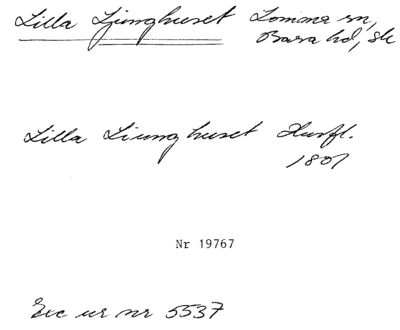 Lilla Ljunghuset Lomma sn,
Bara hd, Sk
Lilla Liunghuset Husfl.
1801
Nr 19767
Exc ur nr 5537